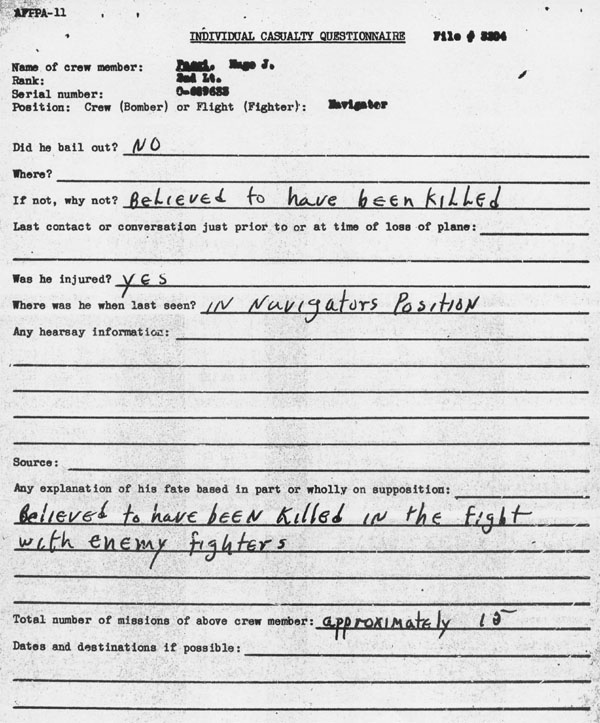 AFFPA-11
INDIVIDUAL CASUALTY QUESTIONNAIRE File # 3304
Name of crew member: Hugo J.
Rank: 2nd Lt.
Serial number:
Position: Crew (Bomber) or Flight (Fighter): Navigator
Did he bail out? NO
Where?
If not, why not? Believed to have been killed
Last contact or conversation just prior to or at time of loss of plane:
Was he injured? yes
Where was he when last seen? IN Navigators Position
Any hearsay information:
Source:
Any explanation of his fate based in part or wholly on supposition:
Believed to have been killed in the fight
with enemy fighters
Total number of missions of above crew member: approximately 15
Dates and destinations if possible: